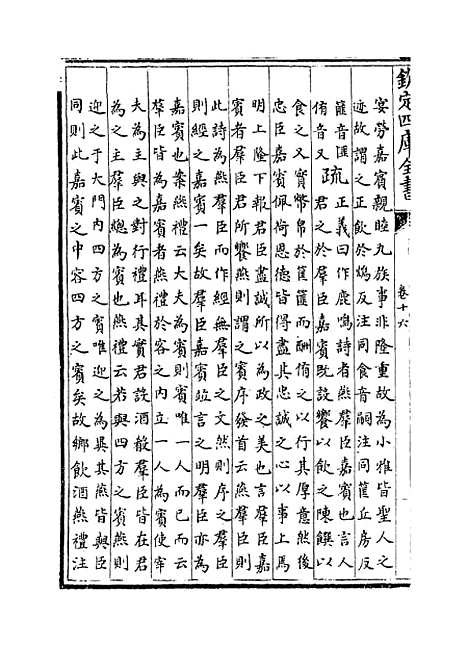 欽定四庫全書
卷十六
客勞嘉賓親睦九族事非隆重故為小雅皆聖人之
迹故謂之正飲於鴆反注同食音嗣注同筐丘房反
篚音匪
侑音又疏正義曰作鹿鳴詩者燕羣臣嘉賓也言人
君之於羣臣嘉賓既設饗以飲之陳饌以
食之又實幣帛於筐篚而酬侑之以行其厚意然後
忠臣嘉賓佩荷恩德皆得盡其忠誠之心以事上焉
明上隆下報君臣盡誠所以為政之美也言羣臣嘉
賓者羣臣君所饗燕則謂之賓序發首云燕羣臣則
此詩為燕羣臣而作經無羣臣之文然則序之羣臣
則經之嘉賓一矣故羣臣嘉賓竝言之明羣臣亦為
嘉賓也案燕禮云大夫為賓則賓唯一人而已而云
羣臣皆為嘉賓者燕禮於客之內立一人為賓使宰
夫為主與之對行禮耳其實君設酒殽羣臣皆在君
為之主羣臣總為賓也燕禮云若與四方之賓燕則
迎之于大門內四方之賓唯迎之為異其燕皆與臣
同則此嘉賓之中容四方之賓矣故鄉飲酒燕禮注